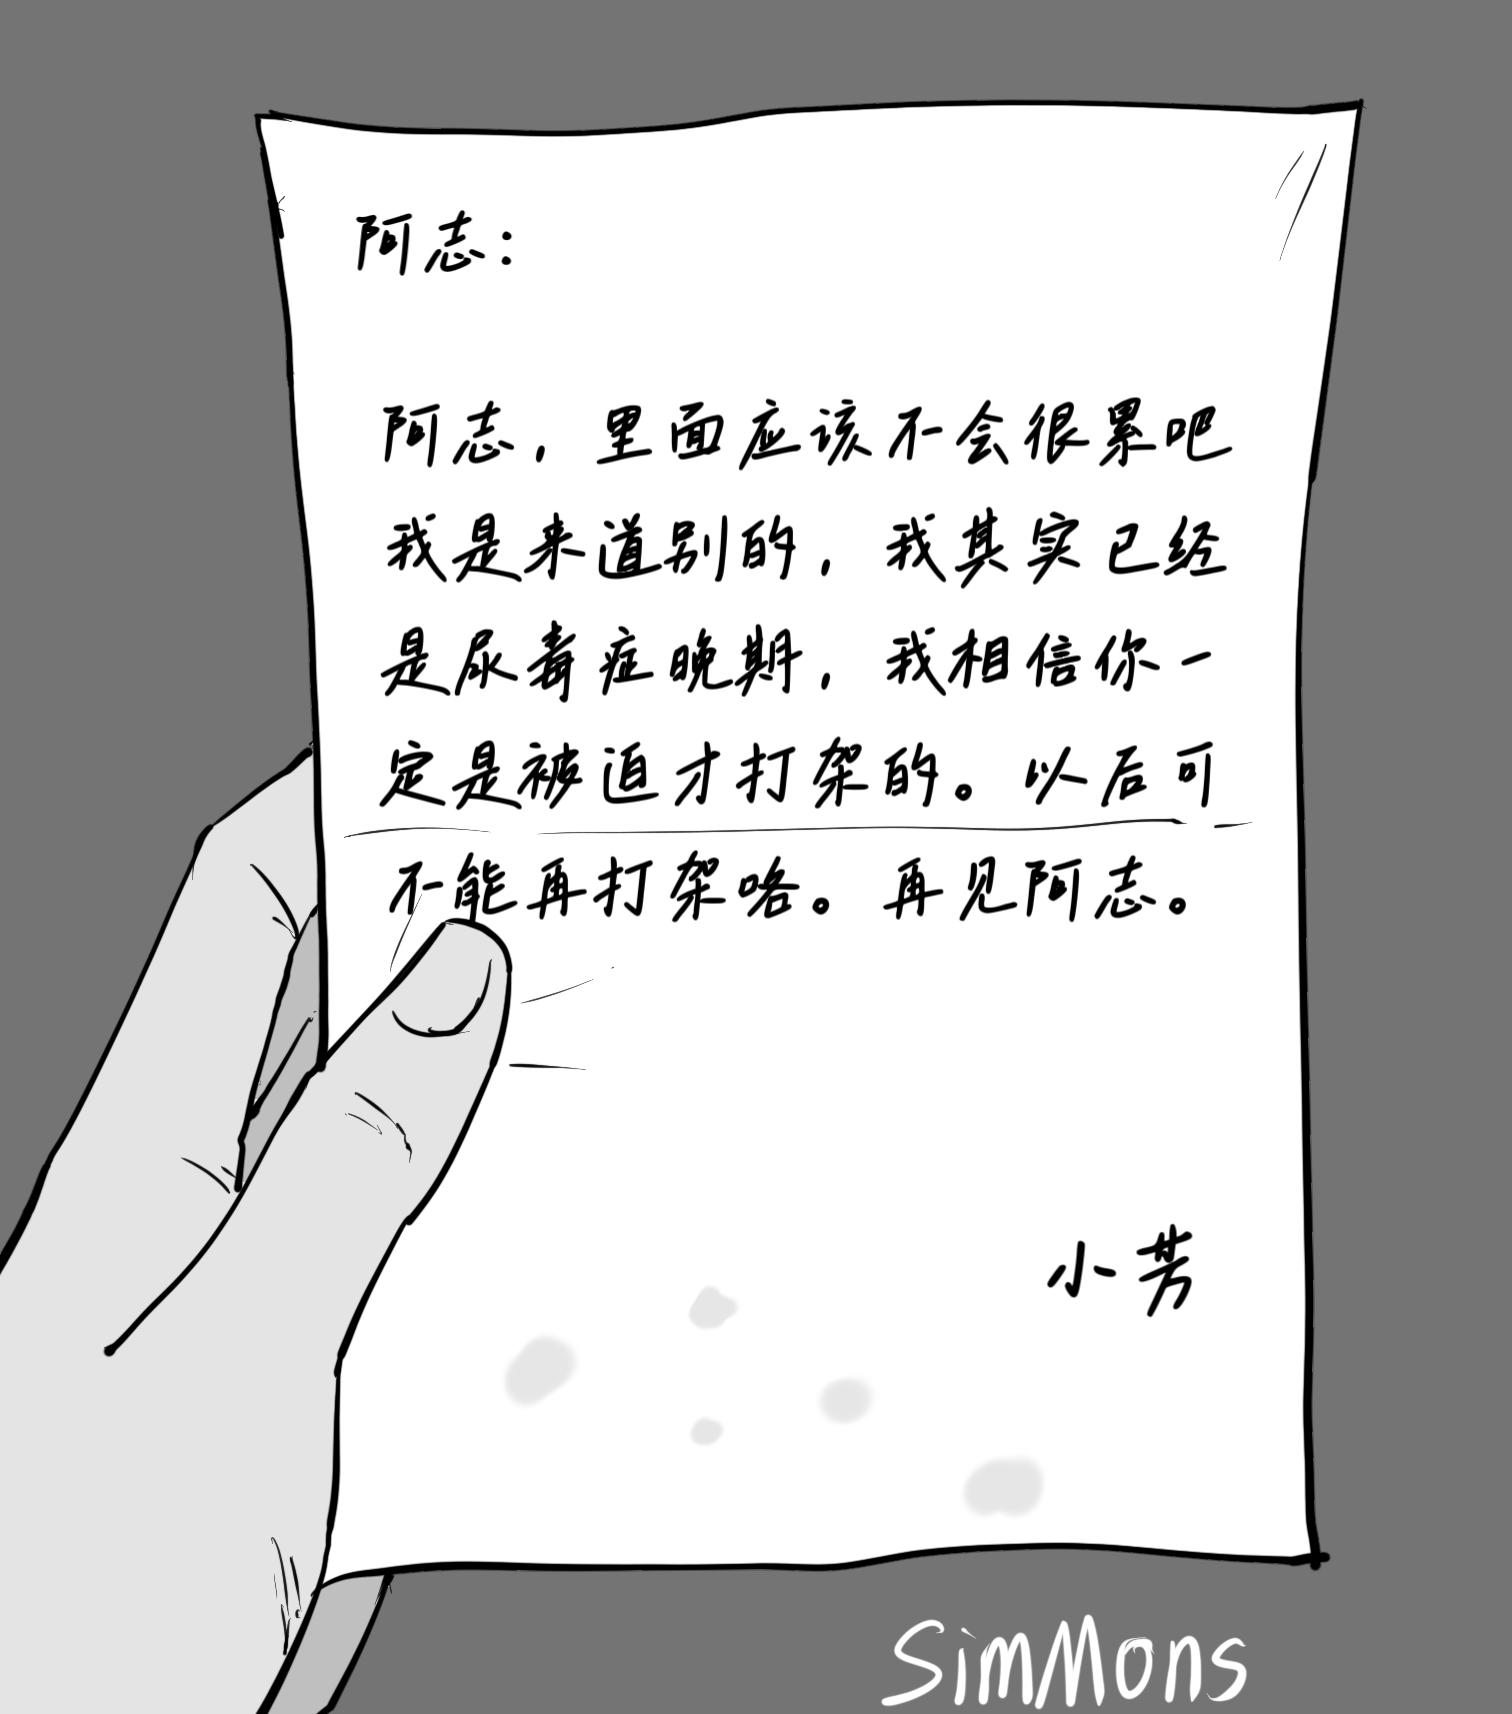 阿志：
阿志，里面应该不会很累吧
我是来道别的，我其实已经
是尿毒症晚期，我相信你一
定是被迫才打架的。以后可
不能再打架咯。再见阿志。
小芳
SimMons